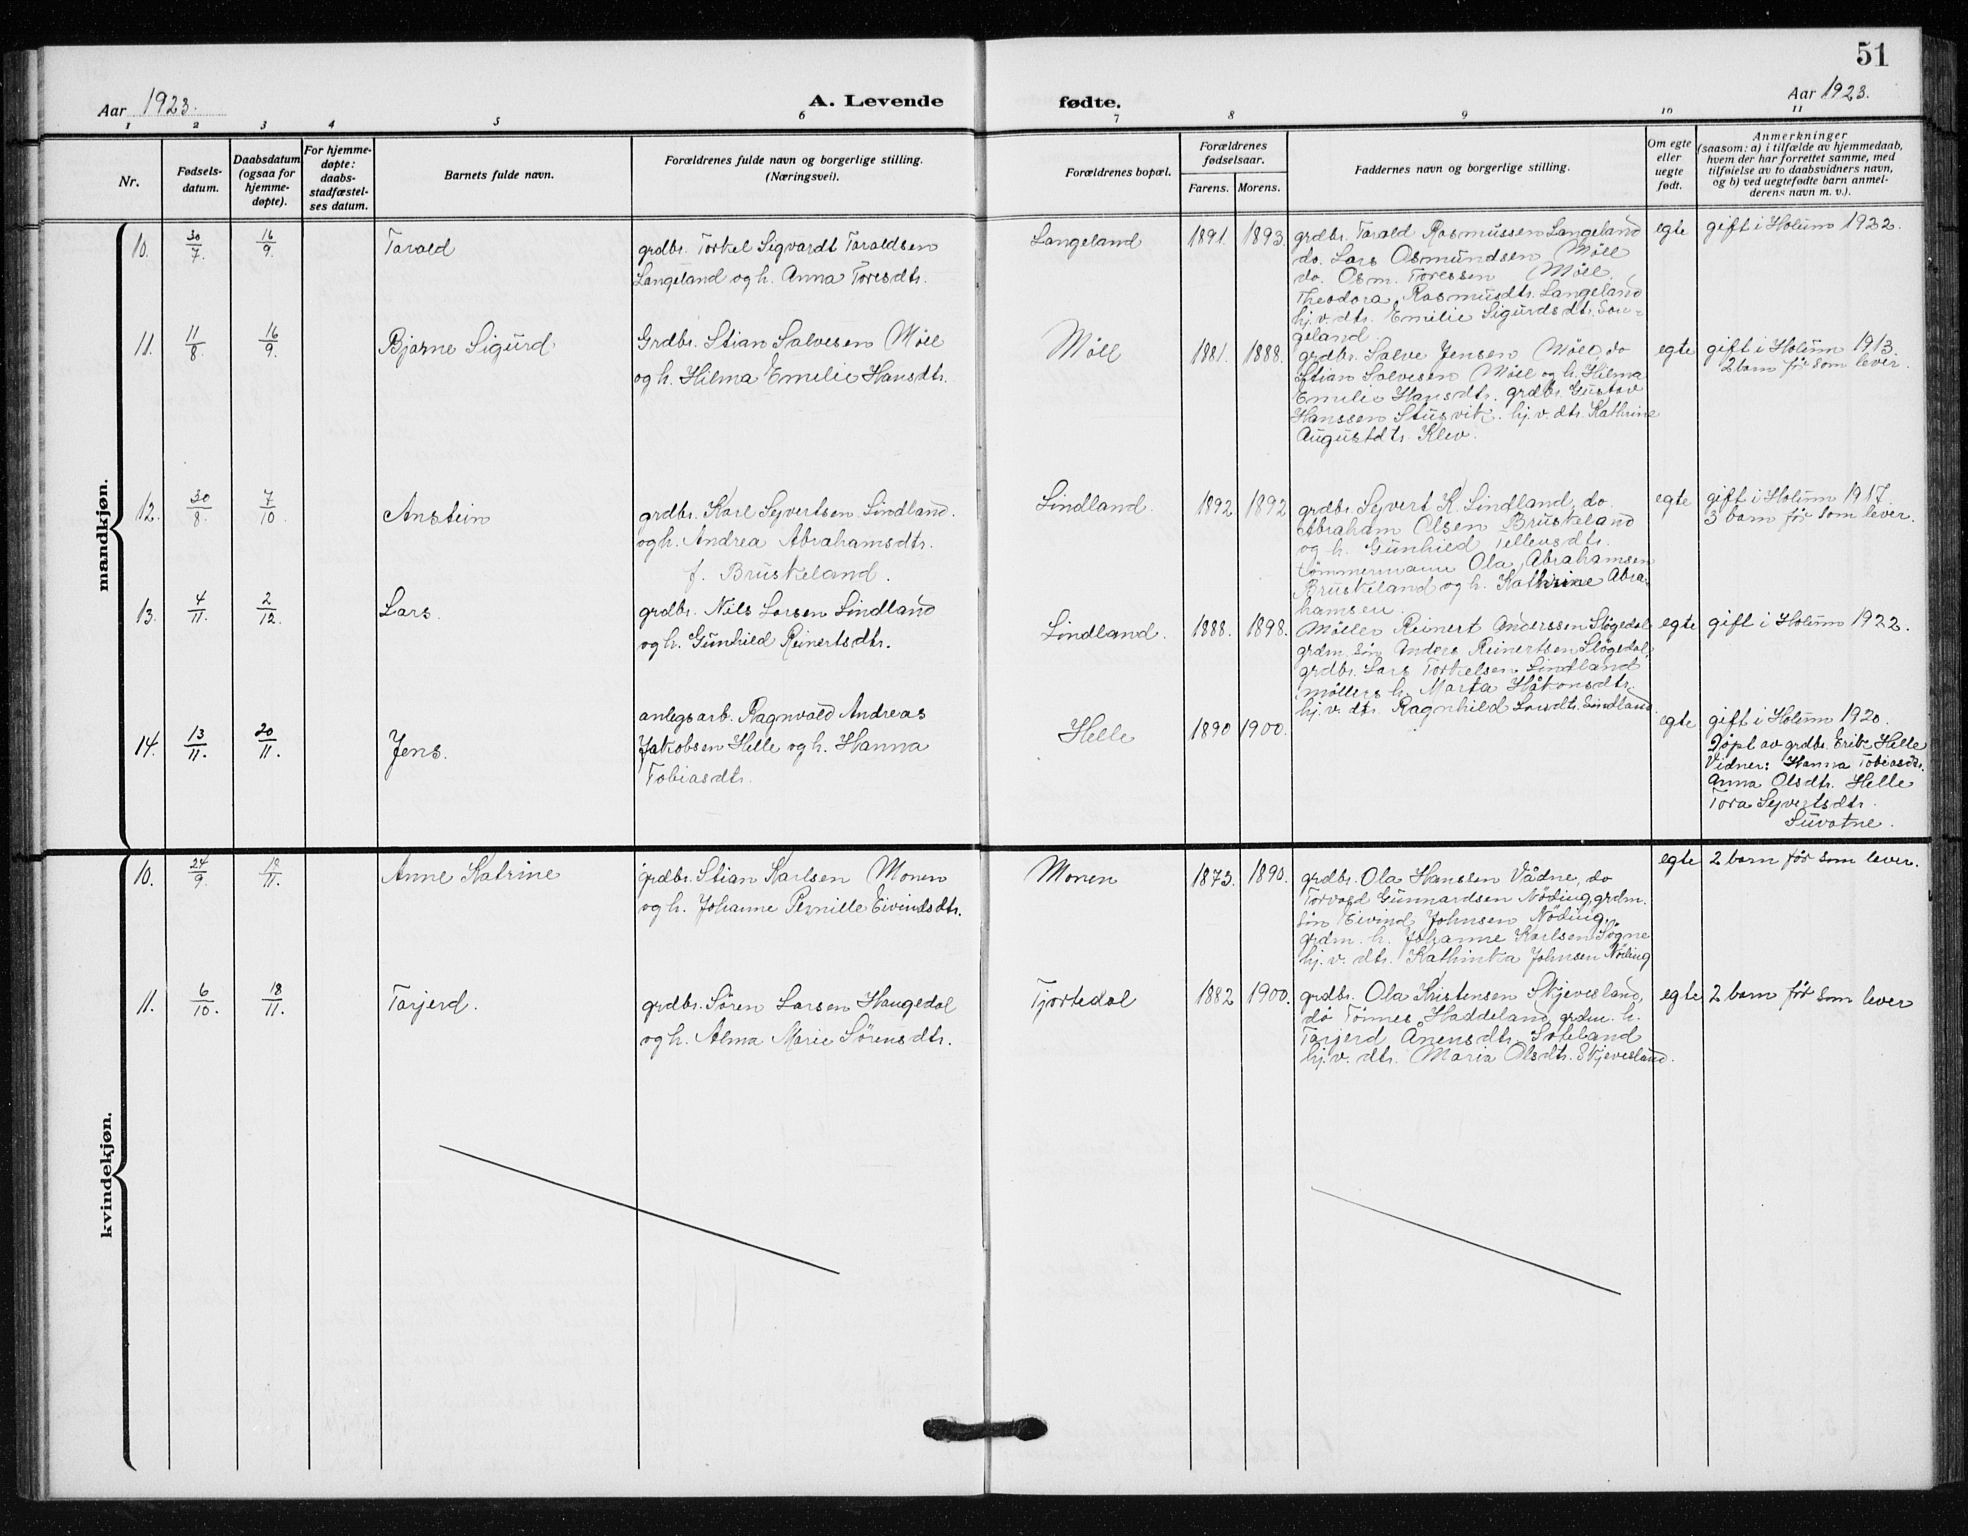 51
Aar 1923.
A. Levende fødte.
Aar 1923.
1 2 3 4 5 6 7 8 9 10 11
Nr.
Fødsels-
datum.
Daabsdatum
(ogsaa for
hjemme-
døpte).
For hjemme-
døpte:
daabs-
stadfæstel-
ses datum.
Barnets fulde navn.
Forældrenes fulde navn og borgerlige stilling.
(Næringsvei).
Forældrenes bopæl.
Forældrenes
fødselsaar.
Farens. Morens.
Faddernes navn og borgerlige stilling.
Om egte
eller
uegte
født.
Anmerkninger
(saasom: a) i tilfælde av hjemmedaab,
hvem der har forrettet samme, med
tilføielse av to daabsvidners navn,
og b) ved uegtefødte barn anmel-
derens navn m. v.).
mandkjøn.
10. 30/7. 16/9. Tarald
grdbr. Torkel Sigvardt Taraldsen
Langeland og h. Anna Toresdtr.
Langeland 1891. 1893.
grdbr. Tarald Rasmussen Langeland
do. Lars Osmundsen Møll
do. Osm. Toressen Møll,
Theodora Rasmusdtr. Langeland
hj. v. dtr. Emilie Sigurdsdtr. Lan-
geland
egte gift i Holum 1922.
11. 11/8. 16/9. Bjarne Sigurd
Grdbr. Stian Salvesen Møll
og h. Hilma Emelie Hansdtr.
Møll 1881. 1888.
grdbr. Salve Jensen Møll, do
Stian Salvesen Møll og h. Hilma
Emelie Hansdtr. grdbr. Gustav
Hanssen Stusvik. hj. v. dtr. Kathrine
Augustdtr. Klev.
egte gift i Holum 1913.
2 barn før som lever.
12. 30/8. 7/10. Anstein
grdbr. Karl Sejvertsen Lindland.
og h. Andrea Abrahamsdtr.
f. Bruskeland.
Lindland. 1892 1892
grdbr. Sejvert K. Lindland, do.
Abraham Olsen Bruskeland
og h. Gunhild Tellevsdtr.
tømmermann Ola Abrahamsen
Bruskeland og h. Kathrine Abra-
hamsen.
egte gift i Holum 1917.
3 barn før som lever.
13. 4/11. 2/12. Lars.
grdbr. Nils Larsen Lindland
og h. Gunhild Reinertsdtr.
Lindland. 1888. 1898.
Møller Reinert Anderssen Sløgedal
grdm. søn Anders Reinertsen Sløgedal,
grdbr. Lars Torkelsen Lindland
møllers h. Marta Håkonsdtr.
hj. v. dtr. Ragnhild Larsdtr. Lindland.
egte gift i Holum 1922.
14. 13/11. 20/11. Jens.
anlegsarb. Ragnvald Andreas
Jakobsen Helle og h. Hanna
Tobiasdtr.
Helle 1890 1900.
egte gift i Holum 1920.
Døpt av grdbr. Erik Helle
Vidner: Hanna Tobiasdtr.
Anna Olsdtr. Helle
Tora Sejvertsdtr.
Suvatne.
kvindekjøn.
10. 24/9. 18/11. Anne Katrine
grdbr. Stian Karlsen Monen
og h. Johanne Pernille Eivindsdtr.
Monen 1873. 1890.
grdbr. Ola Hanssen Vådne, do
Torvald Gunnardsen Nøding, grdm.
søn Eivind Johnsen Nøding,
grdm. h. Johanne Karlsen Søgne
hj. v. dtr. Kathinka Johnsen Nøding
egte 2 barn før som lever.
11. 6/10. 18/11. Tarjerd.
grdbr. Søren Larsen Haugedal
og h. Alma Marie Sørensdtr.
Tjortedal 1882 1900.
grdbr. Ola Kristensen Skjevesland,
do Tønnes Haddeland, grdm. h.
Tarjerd Ånensdtr. Søteland
hj. v. dtr. Maria Olsdtr. Skjevesland.
egte 2 barn før som lever